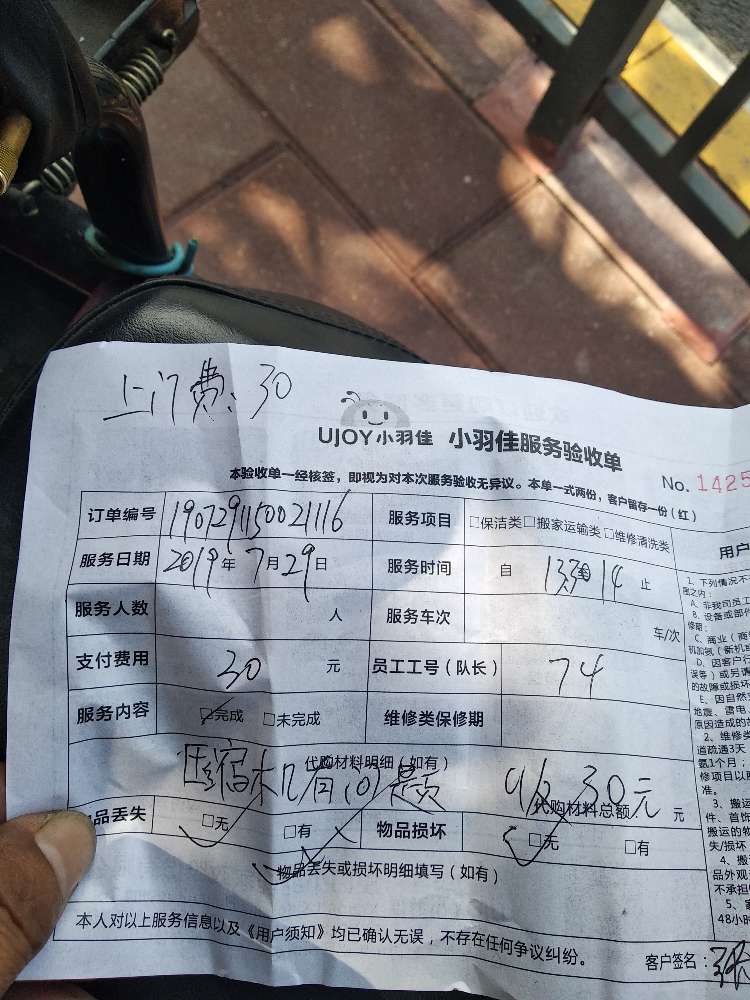 上门费：30
UJOY小羽佳 小羽佳服务验收单
本验收单一经核签，即视为对本次服务验收无异议。本单一式两份，客户留存一份（红）
No. 1425
订单编号 1907291150021116 服务项目 □保洁类□搬家运输类□维修清洗类
服务日期 2019年7月29日 服务时间 自 止
服务人数 人 服务车次 车/次
支付费用 30 元 员工工号（队长） 74
服务内容 □完成 □未完成 维修类保修期
代购材料明细（如有）
压缩机有问题 收30元
代购材料总额 元
品丢失 □无 □有 物品损坏 □无 □有
物品丢失或损坏明细填写（如有）
本人对以上服务信息以及《用户须知》均已确认无误，不存在任何争议纠纷。
客户签名：张
用户
1、下列情况不
围之内：
A、非我司员工
B、设备或部件
修期：
C、商业（商
机加氨（新机或
D、因客户行
误等）或另请
的故障或损坏
E、因自然灾
地震、雷电、
原因造成的故
2、维修类
道疏通3天
氨1个月；
修项目以
准。
3、搬运
件、首饰
搬运的物
失/损坏
4、搬
品外观
不承担
5、家
48小时